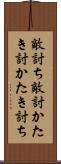 敵討ち敵討かた
き討かたき討ち